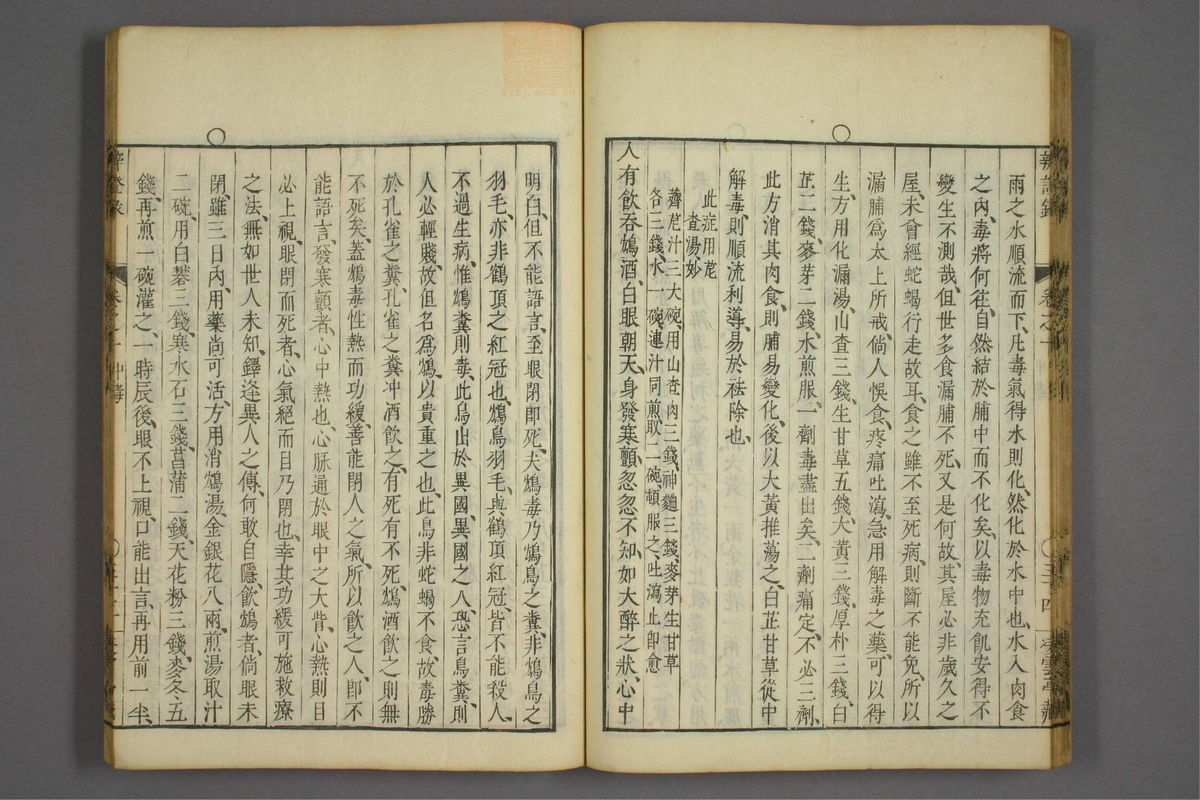 雨之水順流而下、凡毒氣得水則化、然化於水中也、水入肉食
之內、毒將何往、自然結於脯中而不化矣、以毒物充飢、安得不
變生不測哉、但世多食漏脯不死、又是何故、其屋必非歲久之
屋、未曾經蛇蝎行走故耳、食之雖不至死、病則斷不能免、所以
漏脯爲太上所戒、倘人悞食、疼痛吐瀉、急用解毒之藥、可以得
生、方用化漏湯、山查三錢、生甘草五錢、大黃三錢、厚朴三錢、白
芷二錢、麥芽二錢、水煎服、一劑毒盡出矣、二劑痛定、不必三劑、
此方消其肉食、則脯易變化、後以大黃推蕩之、白芷甘草從中
解毒、則順流利導、易於祛除也、
此症用薺
查湯妙
薺苨汁三大碗、用山查肉三錢、神麯三錢、麥芽生甘草
各三錢、水一碗、連汁同煎、取二碗、頓服之、吐瀉止卽愈
人有飲吞鴆酒、白眼朝天、身發寒顫、忽忽不知如大醉之狀、心中
明白、但不能語言、至眼閉卽死、夫鴆毒乃鴆鳥之糞、非鴆鳥之
羽毛、亦非鶴頂之紅冠也、鴆鳥羽毛、與鶴頂紅冠、皆不能殺人、
不過生病、惟鴆糞則毒、此鳥出於異國、異國之人、恐言鳥糞、則
人必輕賤、故但名爲鴆、以貴重之也、此鳥非蛇蝎不食、故毒勝
於孔雀之糞、孔雀之糞冲酒飲之、有死有不死、鴆酒飲之、則無
不死矣、蓋鴆毒性熱而功緩、善能閉人之氣、所以飲之人、卽不
能語言、發寒顫者、心中熱也、心脉通於眼中之大眥、心熱則目
必上視、眼閉而死者、心氣絕而目乃閉也、幸其功緩、可施救療
之法、無如世人未知、鐸逢異人之傳、何敢自隱、飲鴆者、倘眼未
閉、雖三日內、用藥尚可活、方用消鴆湯、金銀花八兩、煎湯取汁
二碗、用白礬三錢、寒水石三錢、菖蒲二錢、天花粉三錢、麥冬五
錢、再煎一碗灌之、一時辰後、眼不上視、口能出言、再用前一半